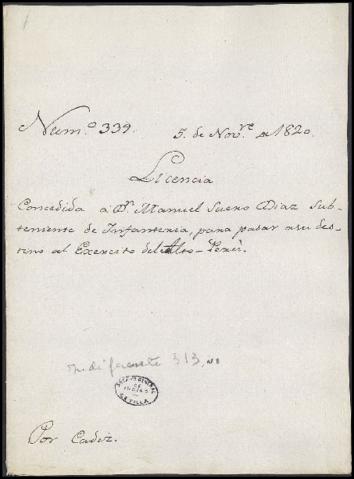 Num.º 339. 5. de Nov.re de 1820.
Licencia
Concedida á Dn. Manuel Sueno Diaz Sub-
teniente de Infanteria, para pasar a su des-
tino al Exercito del Alto-Perú.
Indiferente 313
ARCHIVO GENERAL
DE
INDIAS
SEVILLA
Por Cadiz.